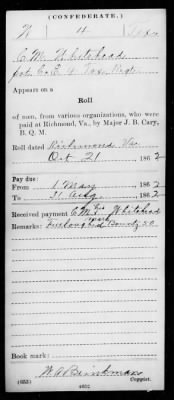 (CONFEDERATE.)
W 4 Tex
C. M. Whitehead
Pvt. Co. E 4 Tex. Regt.
Appears on a
Roll
of men, from various organizations, who were
paid at Richmond, Va., by Major J. B. Cary,
B. Q. M.
Roll dated Richmond Va
Oct 21 , 1862
Pay due:
From 1 May , 1862
To 31 Aug , 1862
Received payment C M his Whitehead
mark
Remarks: Furloughed Bounty 50
Book mark:
W. A. Brinkman
(653) 4652 Copyist.